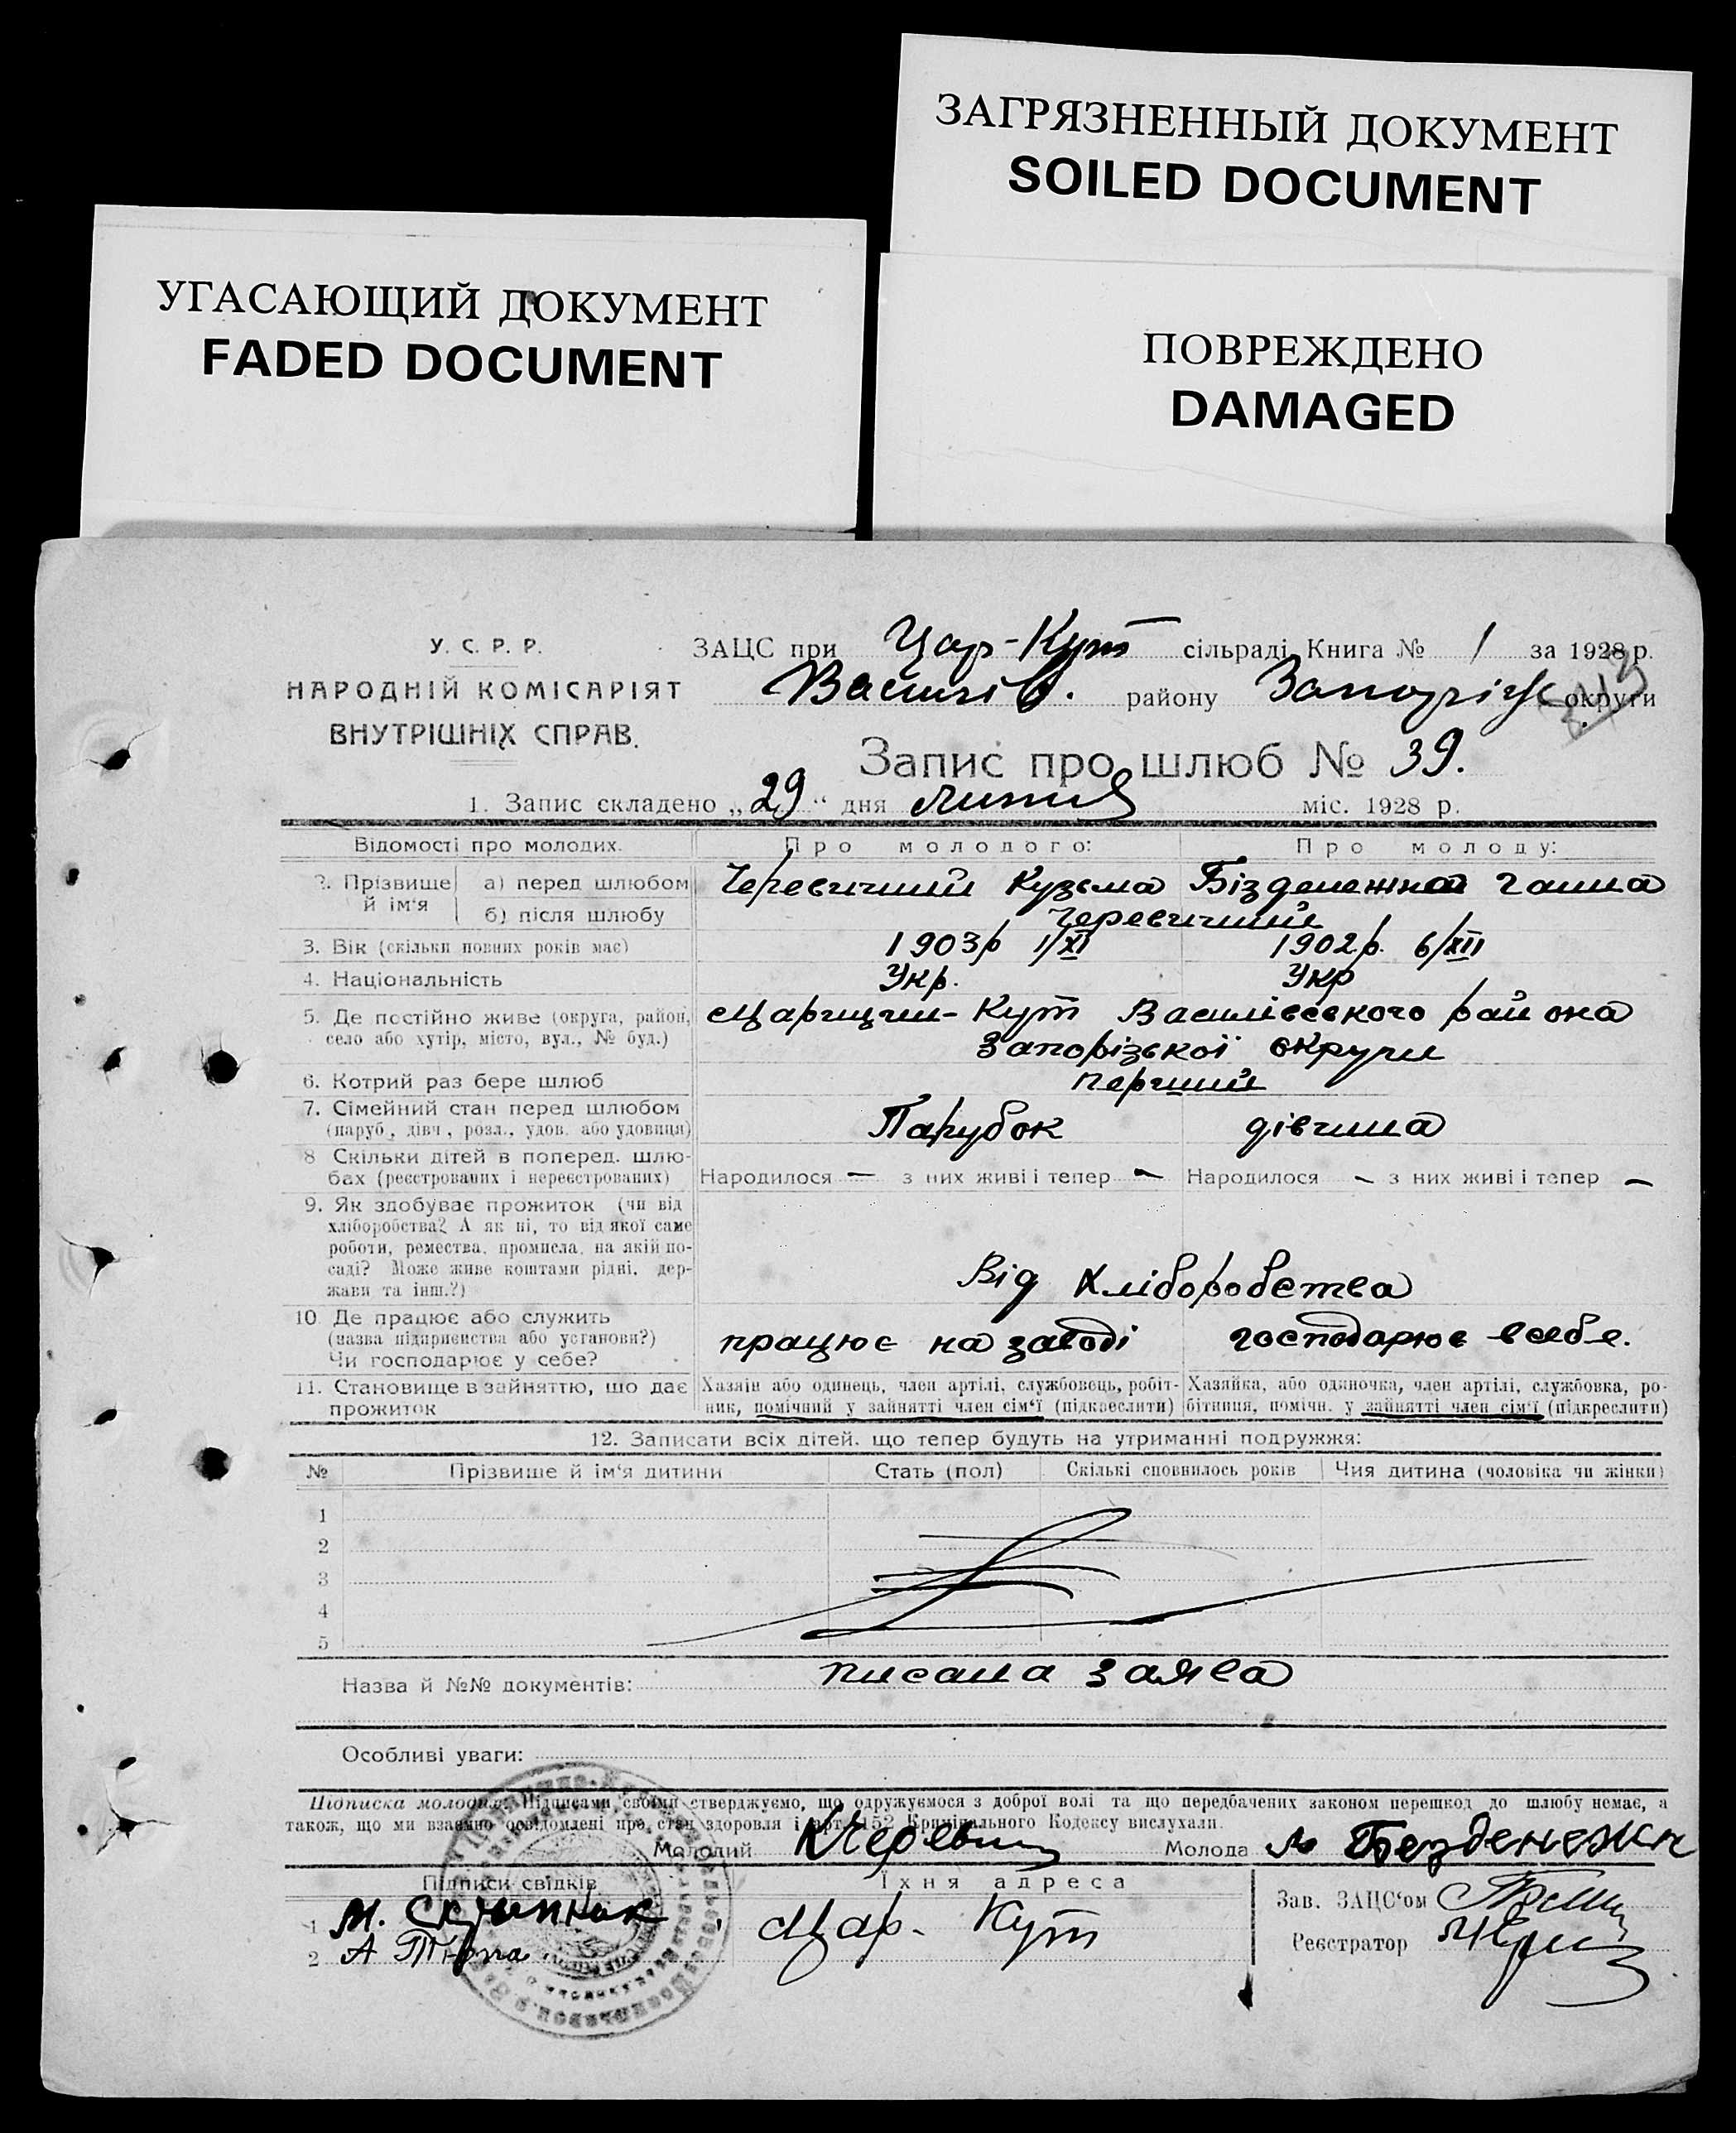 ЗАГРЯЗНЕННЫЙ ДОКУМЕНТ
SOILED DOCUMENT
УГАСАЮЩИЙ ДОКУМЕНТ
FADED DOCUMENT
ПОВРЕЖДЕНО
DAMAGED
У. С. Р. Р.
НАРОДНІЙ КОМІСАРІЯТ
ВНУТРІШНІХ СПРАВ.
ЗАЦС при Цар-Кут сільраді Книга № 1 за 1928 р.
Василів. району Запоріж округи
Запис про шлюб № 39.
1. Запис складено „29“ дня липня міс. 1928 р.
Відомості про молодих. Про молодого: Про молоду:
2. Прізвище й ім'я а) перед шлюбом Черевичний Кузьма Бізденежна Ганна
б) після шлюбу Черевичний
3. Вік (скільки повних років має) 1903р 1/XI 1902р. 6/XII
4. Національність Укр. Укр
5. Де постійно живе (округа, район, село або хутір, місто, вул., № буд.) Царицин-Кут Василівського района
Запорізької округи
6. Котрий раз бере шлюб перший
7. Сімейний стан перед шлюбом (паруб., дівч., розл., удов. або удовиця) Парубок дівчина
8 Скільки дітей в поперед. шлюбах (реєстрованих і нереєстрованих) Народилося — з них живі і тепер — Народилося — з них живі і тепер —
9. Як здобуває прожиток (чи від
хліборобства? А як ні, то від якої саме
роботи, ремества, промисла, на якій по-
саді? Може живе коштами рідні, дер-
жави та інш.?) Від хліборобства
10. Де працює або служить
(назва підприємства або установи?)
Чи господарює у себе? працює на заводі господарює всебе.
11. Становище в зайняттю, що дає прожиток
Хазяїн або одинець, член артілі, службовець, робіт-
ник, помічний у зайнятті член сім'ї (підкреслити)
Хазяйка, або одиночка, член артілі, службовка, ро-
бітниця, помічн. у зайнятті член сім'ї (підкреслити)
12. Записати всіх дітей, що тепер будуть на утриманні подружжя:
№ Прізвище й ім'я дитини Стать (пол) Скількі сповнилось років Чия дитина (чоловіка чи жінки)
1
2
3
4
5
Назва й №№ документів: писана заява
Особливі уваги:
Підписка молодих: Підписами своїми стверджуємо, що одружуємося з доброї волі та що передбачених законом перешкод до шлюбу немає, а
також, що ми взаємно освідомлені про стан здоровля і арт. 152 Кримінального Кодексу вислухали.
Молодий КЧеревич Молода Безденежн
Підписи свідків Їхня адреса
1 М. Скрипник Цар-Кут
2 А
Зав. ЗАЦС'ом
Реєстратор